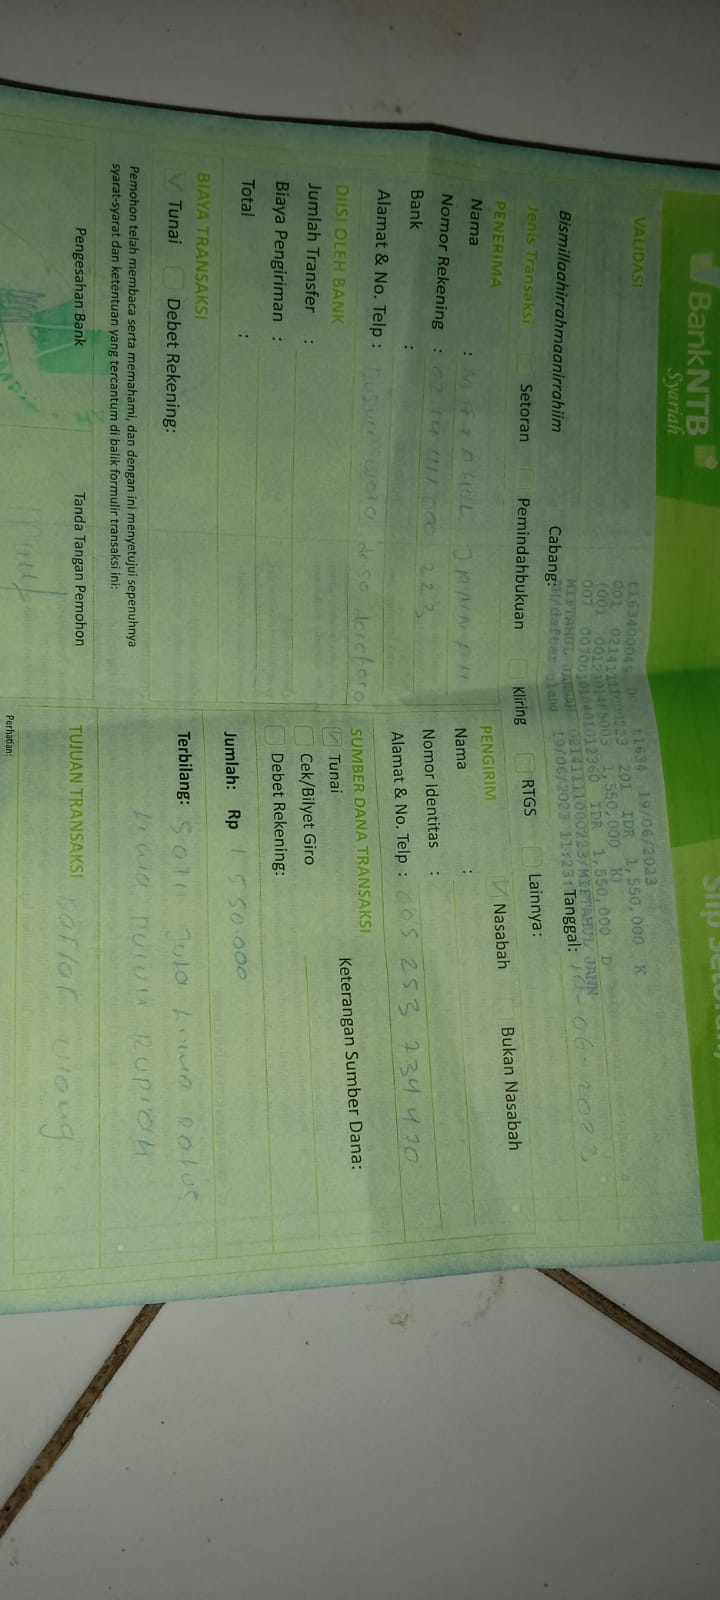 BankNTB
Syariah
Slip Setoran
VALIDASI
t1634 19/06/2023
201 IDR 1,550,000 K
1,550,000 K
00700101040101 2360 IDR 1,550,000 D
MIFTAHUL JANNAH 0214111000223/MIFTAHUL JANN
19/06/2023 11:23:
Bismillaahirrahmaanirrahiim
Cabang:
Tanggal: 19-06-2023
Jenis Transaksi
Setoran
Pemindahbukuan
Kliring
RTGS
Lainnya:
PENERIMA
Nama :
Nomor Rekening :
Bank :
Alamat & No. Telp :
PENGIRIM
Nasabah
Bukan Nasabah
Nama :
Nomor Identitas :
Alamat & No. Telp :
DIISI OLEH BANK
Jumlah Transfer :
Biaya Pengiriman :
Total :
SUMBER DANA TRANSAKSI
Tunai
Keterangan Sumber Dana:
Cek/Bilyet Giro
Debet Rekening:
BIAYA TRANSAKSI
Tunai
Debet Rekening:
Jumlah: Rp 1.550.000
Terbilang: Satu Juta Lima Ratus
Lima Puluh Rupiah
Pemohon telah membaca serta memahami, dan dengan ini menyetujui sepenuhnya
syarat-syarat dan ketentuan yang tercantum di balik formulir transaksi ini:
Pengesahan Bank
Tanda Tangan Pemohon
TUJUAN TRANSAKSI
Daftar Ulang
Perhatian: